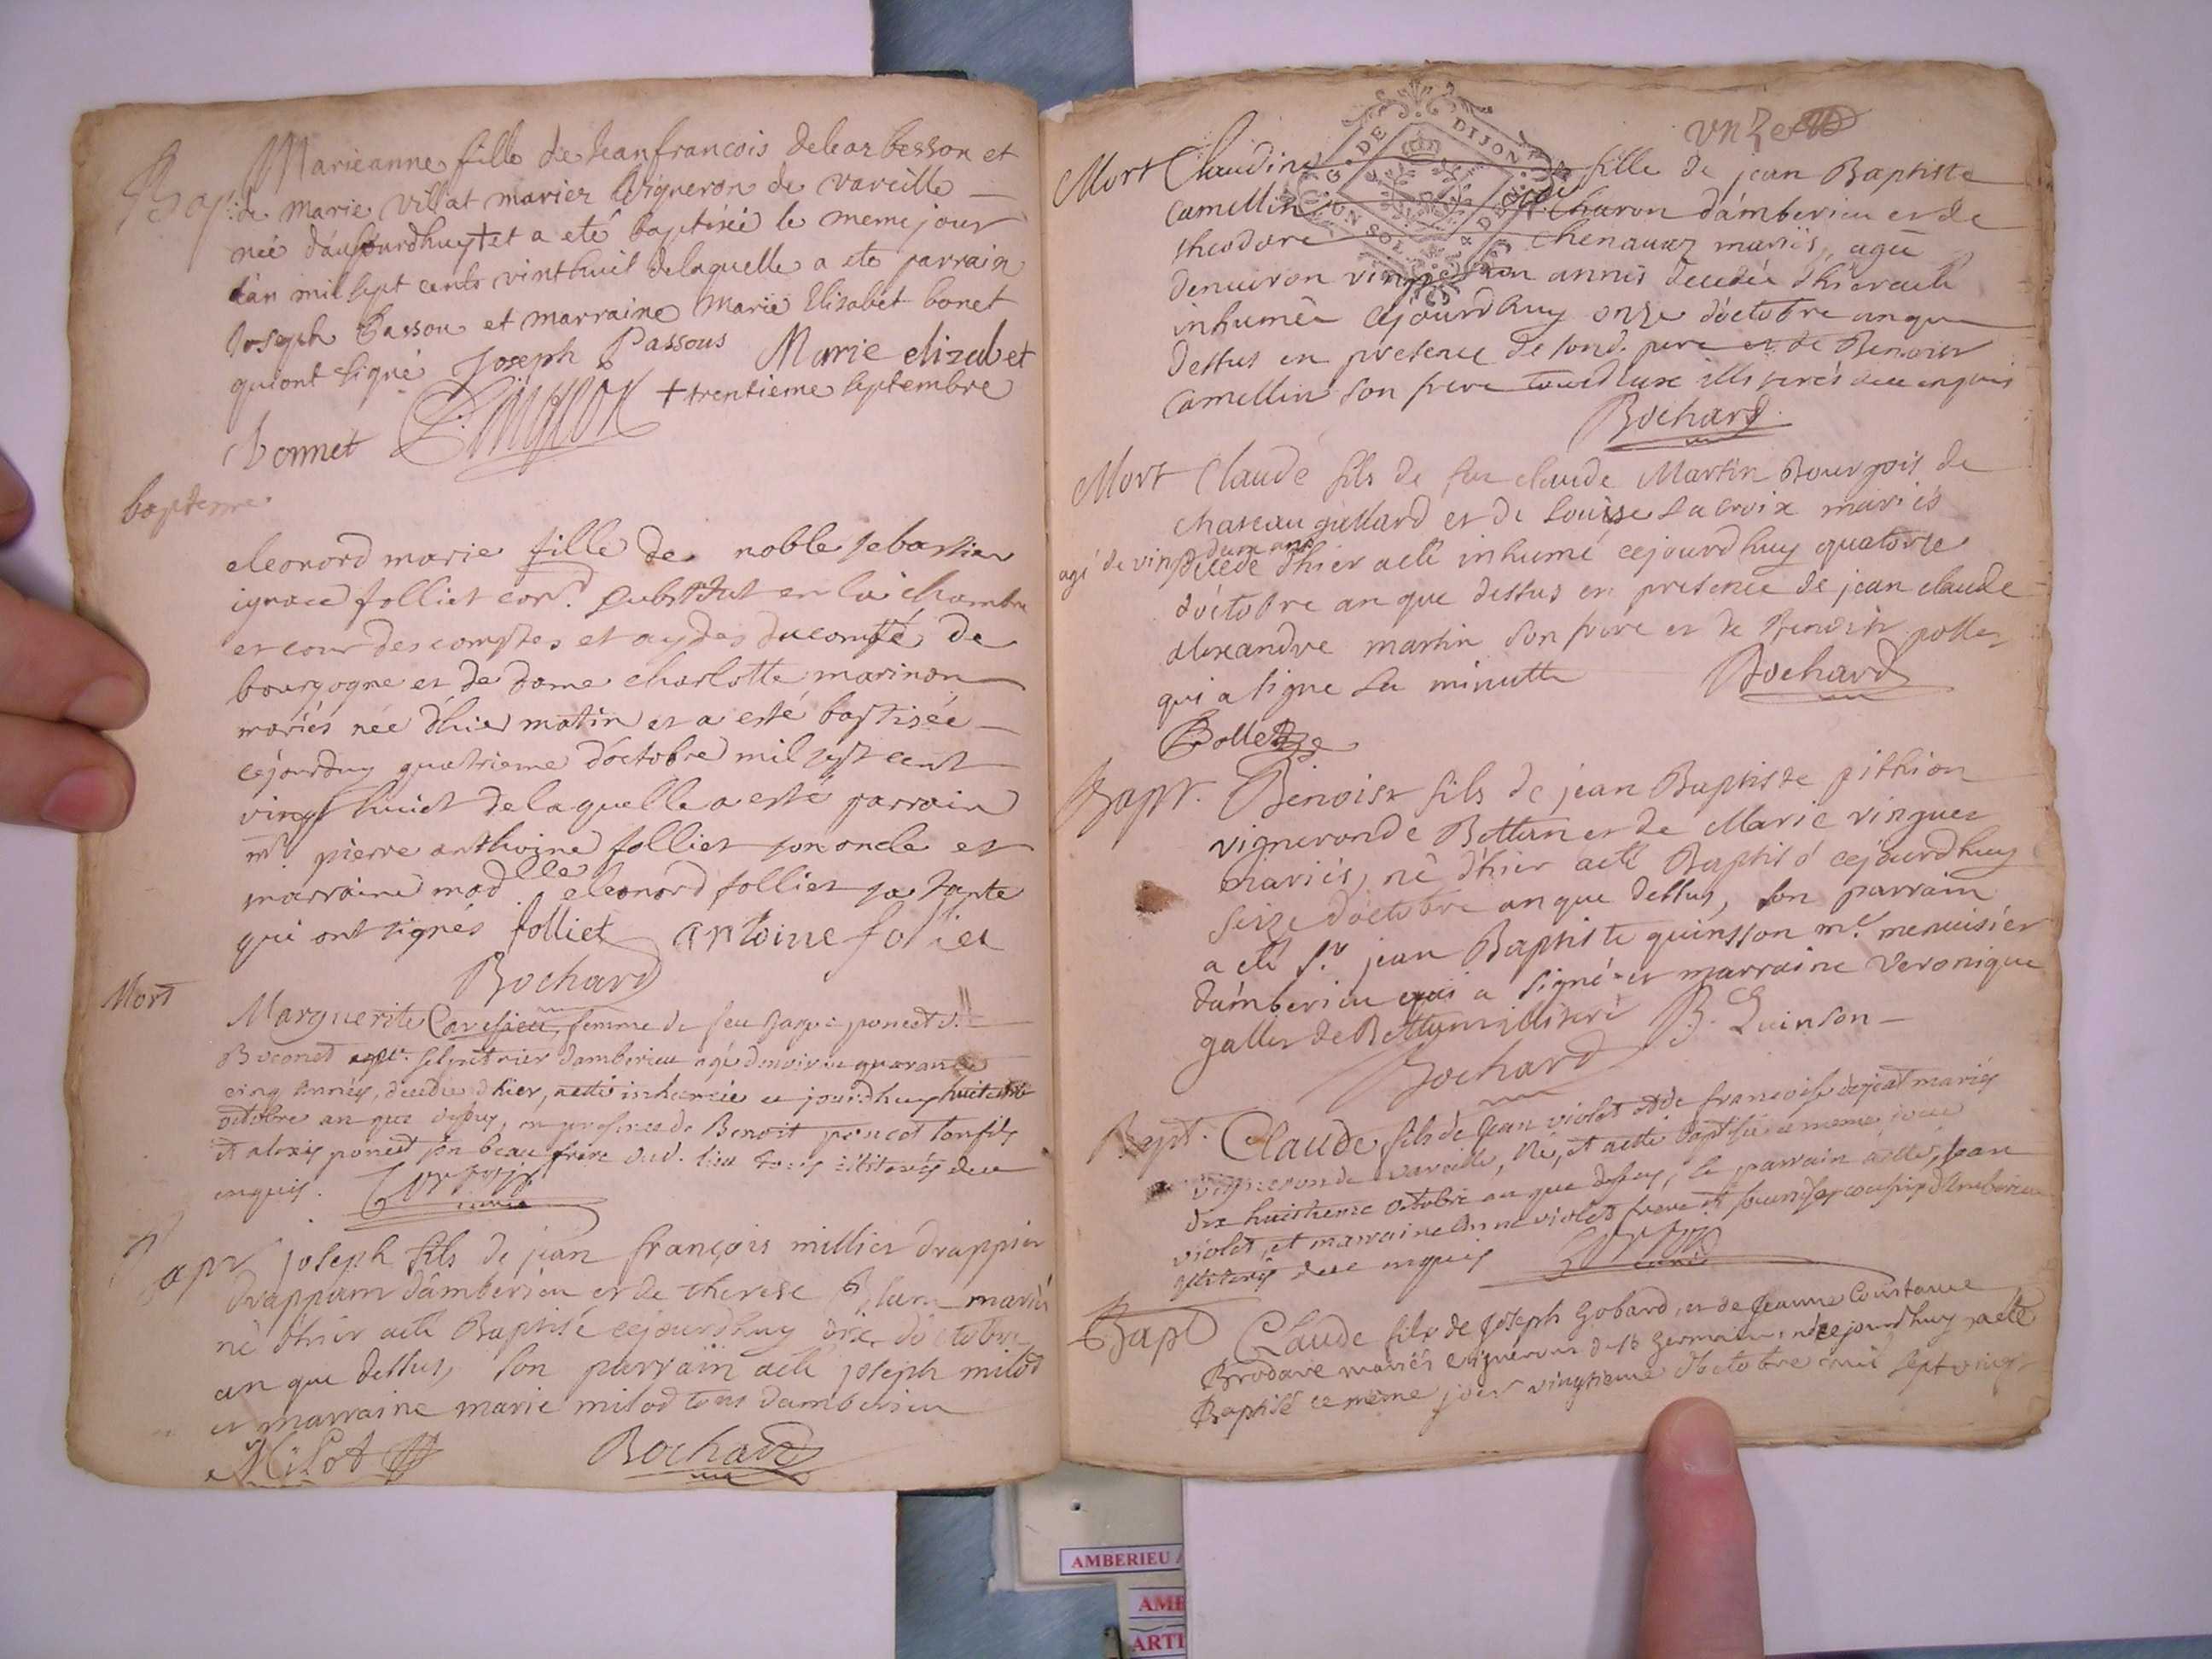 Bapt. Marieanne fille de Jeanfrancois deleaz besson et
de marie villat mariez vigneron de vareille
née daujourdhuy + et a eté baptisée le meme jour
lan mil sept cents vinthuit delaquelle a ete parrain
Joseph Passou et marraine Marie Elisabet bonet
quiont signé Joseph Passous Marie elizabet
+ trentieme septembre
bonnet
bapteme
eleonord marie fille de noble sebastien
ignace folliet con.r substitut en la chambre
et cour des comptes et aydes du comté de
bourgogne et de dame charlotte marinon
mariés née dhier matin et a esté baptisée
cejourduy quatrieme doctobre mil sept cent
vingt huict delaquelle a esté parrain
mr. pierre anthoine folliet son oncle et
marraine madlle. eleonord folliet sa tante
qui ont signés folliet antoine foliet
Bochard
Mort
Marguerite femme de feu poncet d.
Boconet salpetrier damberieu agé denviron quarante
cinq années, decedée dhier, aetté inhumée ce jourdhuy huict
octobre an que dessus, en presence de Benoit poncet son fils
et alexis poncet son beau frere dud. lieu tous illiterés deue
enquis.
curé
Bapt joseph fils de jean françois millier drappier
drappier dámberieu et de therese mariés
né dhier aeté Baptisé cejourdhuy dix doctobre
an que dessus, son parrain aeté joseph milot
et marraine marie milod tous damberieu
Milot Bochard
unze
Mort Claudine fille de jean Baptiste
Camellin charon dámberieu et de
theodore chenavaz mariés, agée
denviron vingt un années decedée dhier aeté
inhumée cejourdhuy onze doctobre an que
dessus en presence de sond. pere et de Benoist
Camellin son frere illiterés deue enquis
Bochard
Mort Claude fils de feu claude Martin Bourgois de
chateau gallard et de Louise Lacroix mariés
agé de vingt deux ans
decedé dhier aeté inhumé cejourdhuy quatorze
doctobre an que dessus en presence de jean claude
alexandre martin son frere et de Benoist pollet
qui a signe sa minutte Bochard
Bollet
Bapt. Benoist fils de jean Baptiste pithion
vigneron de Bettan et de Marie vinguet
mariés, né dhier aeté Baptisé cejourdhuy
seize doctobre an que dessus, son parrain
a eté sr. jean Baptiste quinsson me. menuisier
dámberieu qui a signé et marraine Veronique
gallet de Bettan illiteré B. Quinson
Bochard
Bapt. Claude fils de Jean violet et de francoise dejeat mariés
vigneron de vareille, né, et aetté baptisé ce meme jour
dix huictieme octobre an que dessus, le parrain aetté, Jean
violet, et marraine Anne violet frere et dAmberieu
illiterés deue enquis
curé
Bapt Claude fils de Joseph Gobard, et de Jeanne Constance
Brodare mariés vignerons de st germain, né cejourdhuy aeté
Baptisé ce même jour vingtieme doctobre mil sept vingt
AMBERIEU
AMB
ARTI